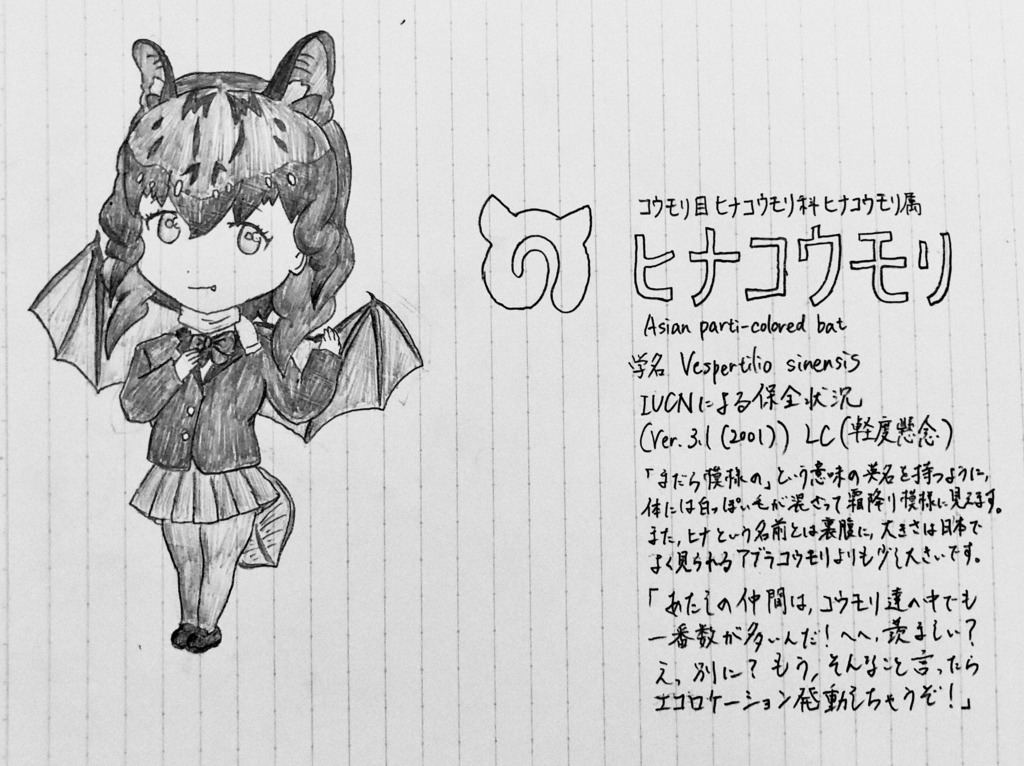 コウモリ目ヒナコウモリ科ヒナコウモリ属
ヒナコウモリ
Asian parti-colored bat
学名 Vespertilio sinensis
IUCNによる保全状況
(Ver.3.1(2001)) LC(軽度懸念)
「まだら模様の」という意味の英名を持つように、
体には白っぽい毛が混ざって霜降り模様に見えます。
また、ヒナという名前とは裏腹に、大きさは日本で
よく見られるアブラコウモリよりも少し大きいです。
「あたしの仲間は、コウモリ達の中でも
一番数が多いんだ!へへ、羨ましい?
えっ、別に?もう、そんなこと言ったら
エコロケーション発動しちゃうぞ!」